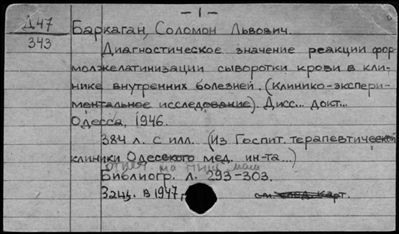 - 1 -
Д47
343
Баркаган, Соломон Львович.
Диагностическое значение реакции фор-
молжелатинизации сыворотки крови в кли-
нике внутренних болезней. (Клинико-экспери-
ментальное исследование). Дисс... докт...
Одесса, 1946.
384 л. с илл. (Из Госпит. терапевтической
клиники Одесского мед. ин-та...)
Библиогр. л. 293-303.
Защ. в 1947 г.
см. след. карт.